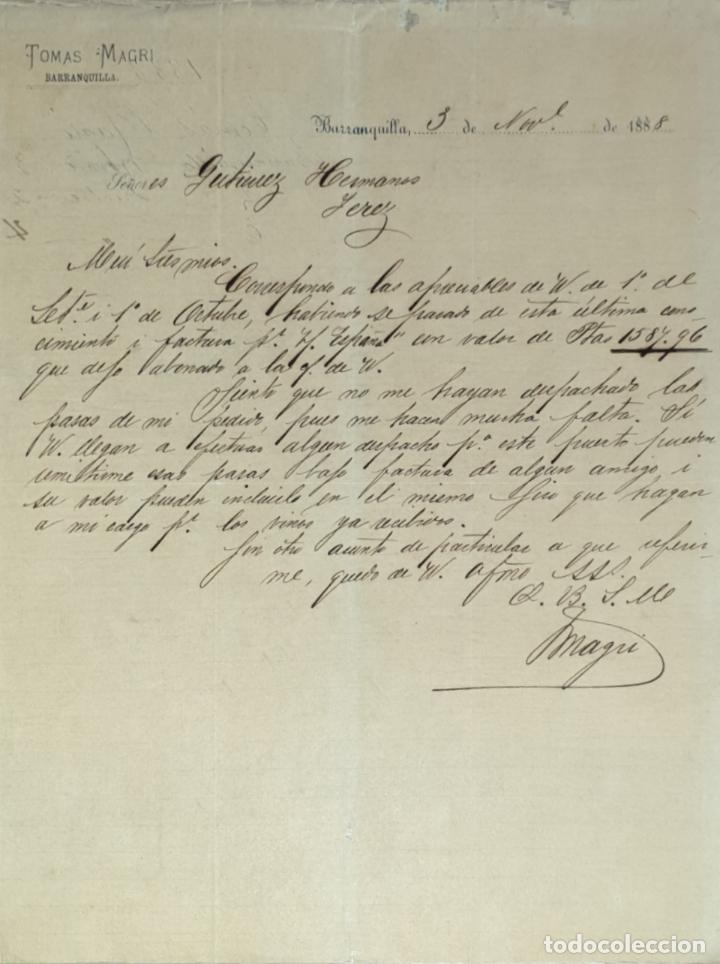 TOMAS MAGRI
BARRANQUILLA.
Barranquilla, 3 de Nov.e de 1888
Señores Gutierrez Hermanos
Jerez
Mui Sres mios.
Correspondo a las apreciables de W. de 1º. de
Set.e i 1º de Octubre, habiendo se pasado de esta última cono-
cimiento i factura pr. España" con valor de Ptas 1587.96
que dejo abonado a la de W.
Siento que no me hayan despachado las
pasas de mi pedido, pues me hacen mucha falta. Si
W. llegan a efectuar algun despacho pa. este puerto pueden
remitirme esas pasas bajo factura de algun amigo, i
su valor pueden incluirlo en el mismo Giro que hagan
a mi cargo pr. los vinos ya recibidos.
Sin otro asunto de particular a que referir-
me, quedo de W. afmo SSS.
Q. B. S. M
TMagri
todocoleccion